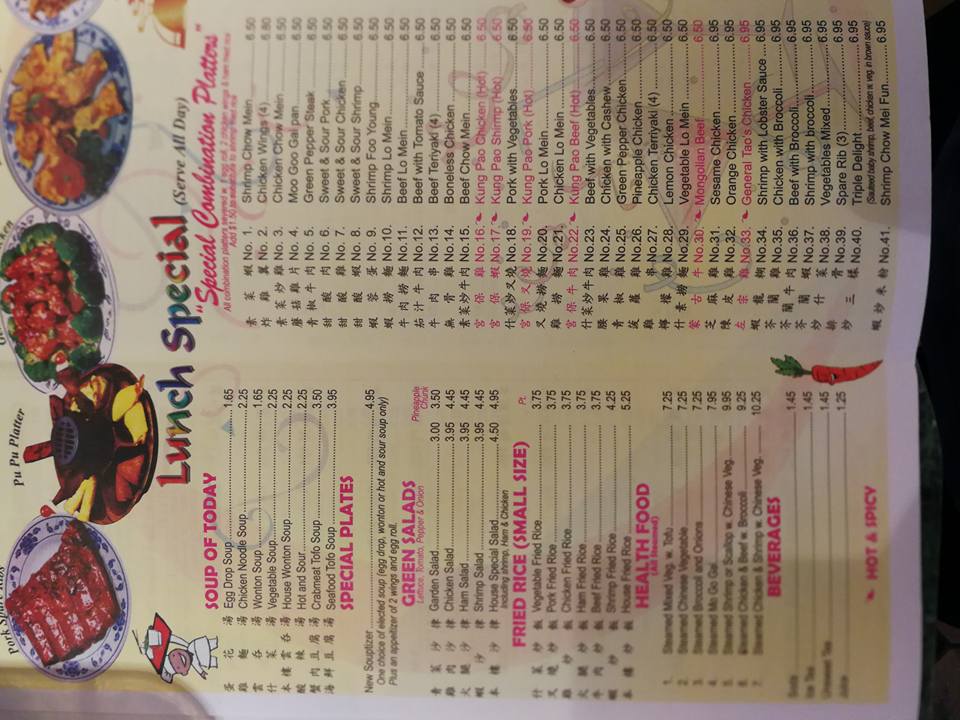 Pork Spare Ribs
Pu Pu Platter
Lunch Special (Serve All Day)
"Special Combination Platters"
All combination platters severed w. egg roll, 2 chicken wings & ham fried rice
Add $1.50 to substitute to shrimp fried rice
SOUP OF TODAY
蛋 花 湯 Egg Drop Soup 1.65
雞 麵 湯 Chicken Noodle Soup 2.25
雲 吞 湯 Wonton Soup 1.65
什 菜 湯 Vegetable Soup 2.25
本 樓 雲 吞 湯 House Wonton Soup 2.25
酸 辣 湯 Hot and Sour 2.25
蟹 肉 豆 腐 湯 Crabmeat Tofo Soup 3.50
海 鮮 豆 腐 湯 Seafood Tofo Soup 3.95
SPECIAL PLATES
New Souptizer 4.95
One choice of elected soup (egg drop, wonton or hot and sour soup only)
Plus an appetizer of 2 wings and egg roll.
GREEN SALADS
Lettuce, Tomato, Pepper & Onion
Pineapple Chunk
青 菜 沙 律 Garden Salad 3.00 3.50
雞 肉 沙 律 Chicken Salad 3.95 4.45
火 腿 沙 律 Ham Salad 3.95 4.45
蝦 沙 律 Shrimp Salad 3.95 4.45
本 樓 沙 律 House Special Salad 4.50 4.95
Including shrimp, Ham & Chicken
FRIED RICE (SMALL SIZE)
Pt.
什 菜 炒 飯 Vegetable Fried Rice 3.75
叉 燒 炒 飯 Pork Fried Rice 3.75
雞 炒 飯 Chicken Fried Rice 3.75
火 腿 炒 飯 Ham Fried Rice 3.75
牛 肉 炒 飯 Beef Fried Rice 3.75
蝦 炒 飯 Shrimp Fried Rice 4.25
本 樓 炒 飯 House Fried Rice 5.25
HEALTH FOOD
(All Steamed)
1. Steamed Mixed Veg. w. Tofu 7.25
2. Steamed Chinese Vegetable 7.25
3. Steamed Broccoli and Onions 7.25
4. Steamed Mo Go Gai 7.95
5. Steamed Shrimp or Scallop w. Chinese Veg. 9.95
6. Steamed Chicken & Beef w. Broccoli 9.25
7. Steamed Chicken & Shrimp w. Chinese Veg. 10.25
BEVERAGES
Soda 1.45
Ice Tea 1.45
Unsweet Tea 1.45
Juice 1.25
HOT & SPICY
素 菜 蝦 No. 1. Shrimp Chow Mein 6.50
炸 雞 翼 No. 2. Chicken Wings (4) 6.80
素 菜 炒 雞 No. 3. Chicken Chow Mein 6.50
蘑 菇 雞 片 No. 4. Moo Goo Gai pan 6.50
青 椒 牛 肉 No. 5. Green Pepper Steak 6.50
甜 酸 肉 No. 6. Sweet & Sour Pork 6.50
甜 酸 雞 No. 7. Sweet & Sour Chicken 6.50
甜 酸 蝦 No. 8. Sweet & Sour Shrimp 6.50
蝦 蓉 蛋 No. 9. Shrimp Foo Young 6.50
蝦 撈 麵 No.10. Shrimp Lo Mein 6.50
牛 肉 撈 麵 No.11. Beef Lo Mein 6.50
茄 汁 牛 肉 No.12. Beef with Tomato Sauce 6.50
牛 肉 串 No.13. Beef Teriyaki (4) 6.50
無 骨 雞 No.14. Boneless Chicken 6.50
素菜炒牛肉 No.15. Beef Chow Mein 6.50
宮 保 雞 No.16. Kung Pao Chicken (Hot) 6.50
宮 保 蝦 No.17. Kung Pao Shrimp (Hot) 6.50
什菜炒叉燒 No.18. Pork with Vegetables 6.50
宮 保 叉 燒 No.19. Kung Pao Pork (Hot) 6.50
叉 燒 撈 麵 No.20. Pork Lo Mein 6.50
雞 撈 麵 No.21. Chicken Lo Mein 6.50
宮 保 牛 肉 No.22. Kung Pao Beef (Hot) 6.50
什菜炒牛肉 No.23. Beef with Vegetables 6.50
腰 果 雞 No.24. Chicken with Cashew 6.50
青 椒 雞 No.25. Green Pepper Chicken 6.50
菠 蘿 雞 No.26. Pineapple Chicken 6.50
雞 串 No.27. Chicken Terriyaki (4) 6.50
檸 檬 雞 No.28. Lemon Chicken 6.50
什 素 撈 麵 No.29. Vegetable Lo Mein 6.50
蒙 古 牛 No.30. Mongolian Beef 6.50
芝 麻 雞 No.31. Sesame Chicken 6.95
陳 皮 雞 No.32. Orange Chicken 6.95
左 宗 雞 No.33. General Tao's Chicken 6.95
蝦 龍 糊 No.34. Shrimp with Lobster Sauce 6.95
芥 蘭 雞 No.35. Chicken with Broccoli 6.95
芥 蘭 牛 肉 No.36. Beef with Broccoli 6.95
芥 蘭 蝦 No.37. Shrimp with broccoli 6.95
炒 什 菜 No.38. Vegetables Mixed 6.95
排 骨 No.39. Spare Rib (3) 6.95
炒 三 樣 No.40. Triple Delight 6.95
(Sauteed baby shrimp, beef, chicken w. veg. in brown sauce)
蝦 炒 米 粉 No.41. Shrimp Chow Mei Fun 6.95